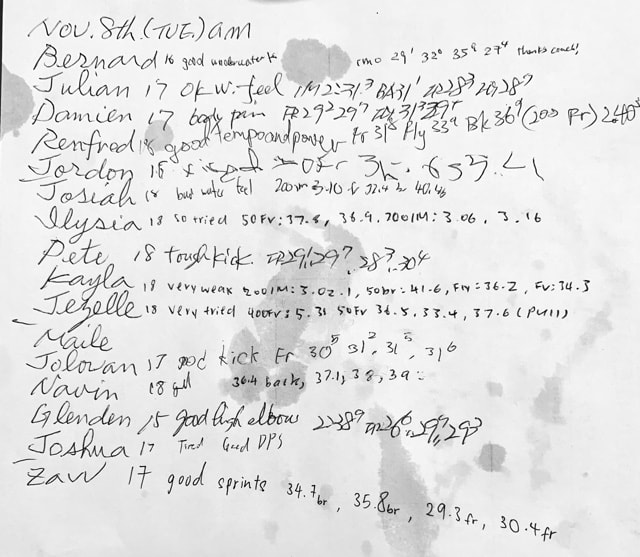 Nov. 8th. (TUE.) am
Bernard 18 good underwater k cmo 29' 32⁰ 35⁹ 27⁴ thanks coach!
Julian 17 OK W. feel IM 2:31.³ BA 31' 28³ 28⁷
Damien 17 body pain FR 29² 29⁷ 31³
Renfred 18 good tempo and power Fr 31⁸ Fly 33⁹ Bk 36⁹ (200 Pr) 2:40³
Jordon 18
Josiah 18 bad water feel 200m 3.10 fr 32.4
Ilysia 18 so tried 50Fr: 37.8, 38.9, 200IM: 3.06, 3.16
Pete 18 tough kick 29', 29⁷, 28³, 30⁴
Kayla 18 very weak 200IM: 3.02.1, 50br: 41.6, Fly: 36.2, Fr: 34.3
Jezelle 18 very tried 400Fr: 5.31 50Fr 36.5, 33.4, 37.6 (Pull)
Maile
Jolovan 17 good kick Fr 30⁵ 31², 31⁵, 31⁶
Navin 18 36.4 back, 37.1, 38, 39
Glenden 15 good high elbow 2:38⁹ 26⁶, 29⁹, 29³
Joshua 17 Tired Good DPS
Zaw 17 good sprints 34.7br, 35.8br, 29.3fr, 30.4fr